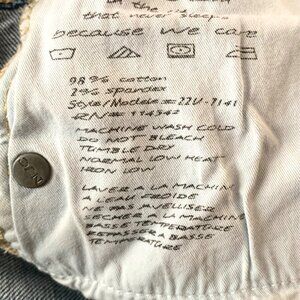 in the
that never sleeps
because we care
98% cotton
2% spandex
Style/Modele# 22U-7141
RN#
MACHINE WASH COLD
DO NOT BLEACH
TUMBLE DRY
NORMAL LOW HEAT
IRON LOW
LAVER A LA MACHIN
A LEAU FROIDE
NE PAS JAVELLISER
SECHER A LA MACHINE
BASSE TEMPERATURE
REPASSER A BASSE
TEMPERATURE